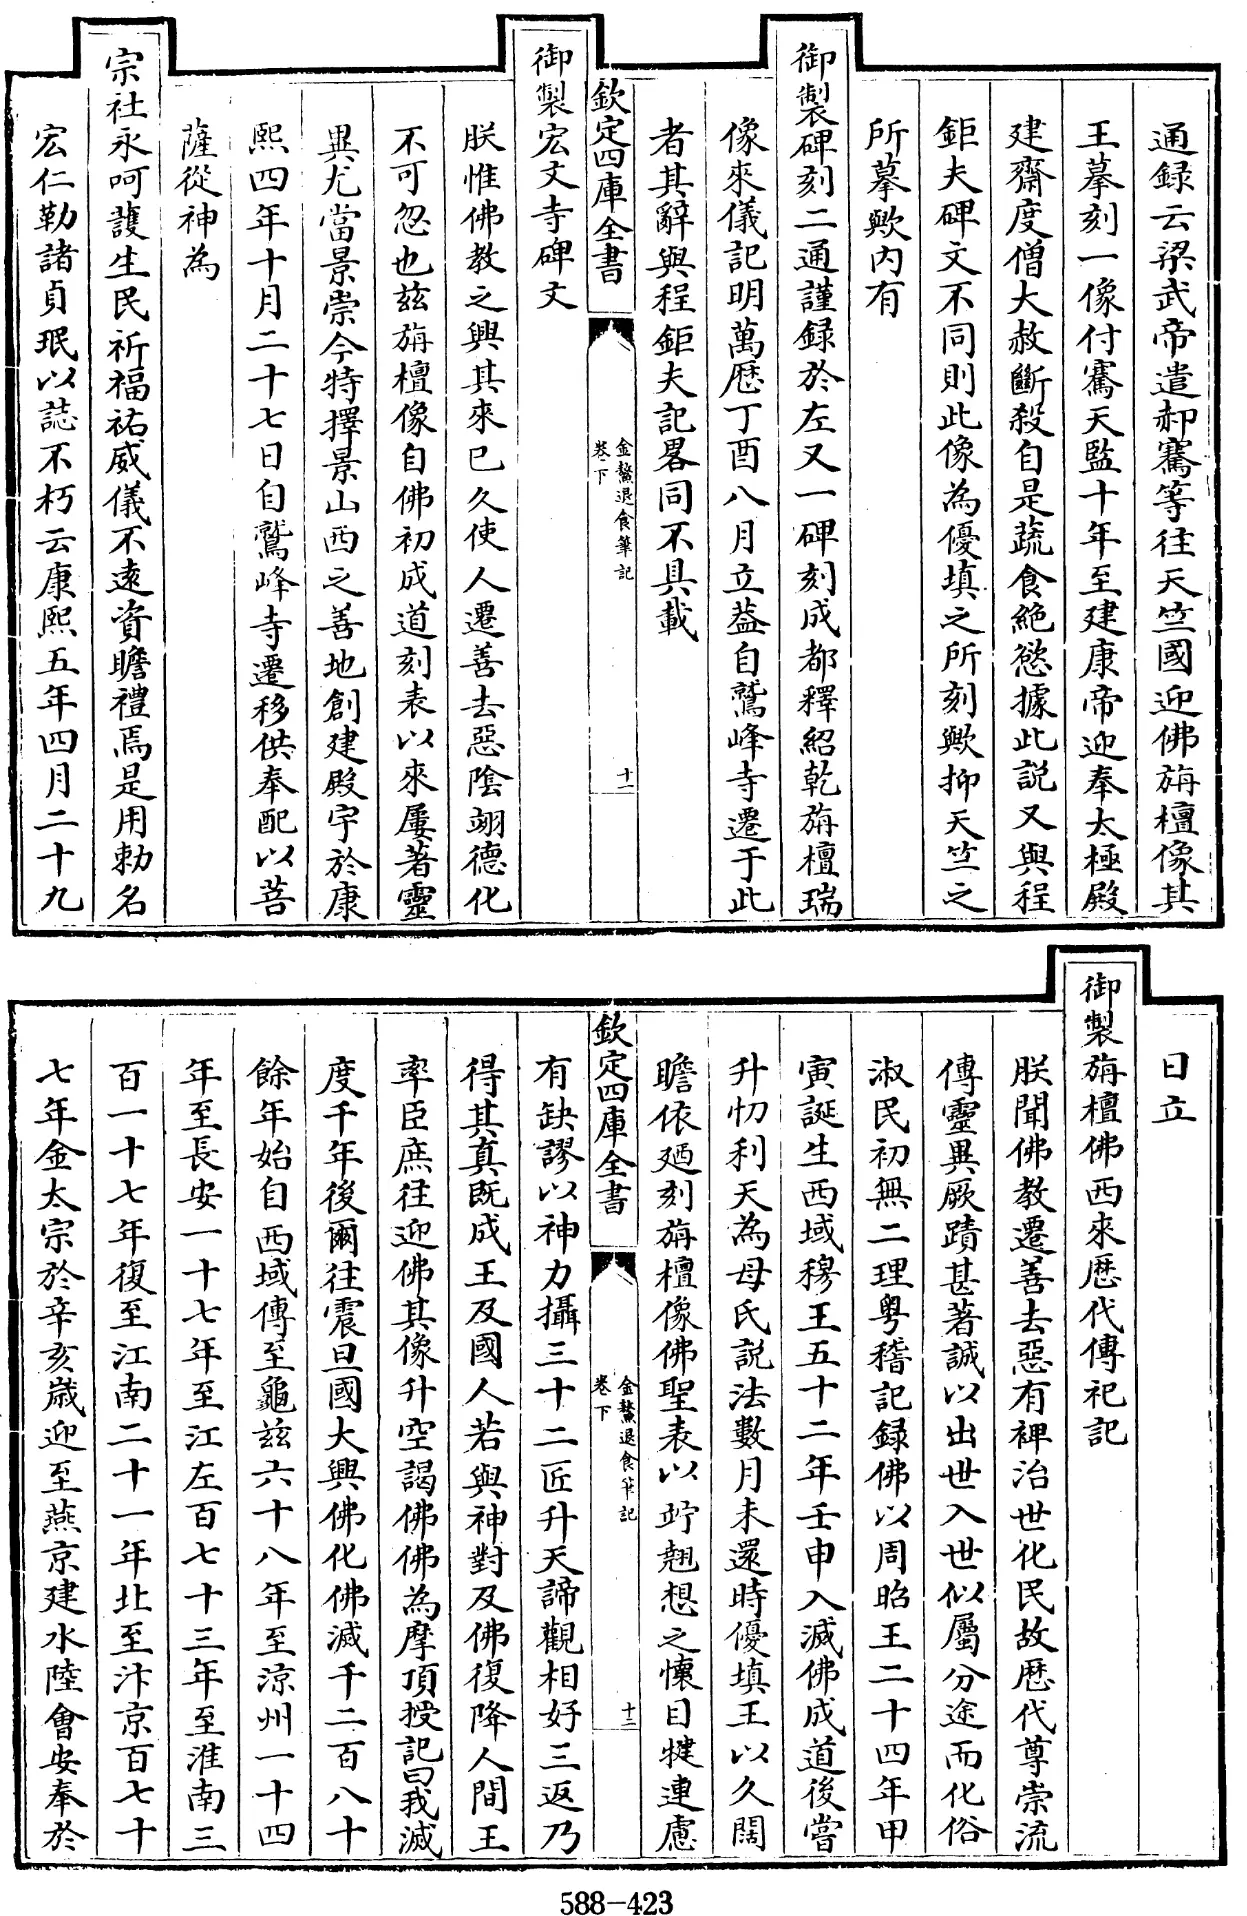 通録云梁武帝遣郝騫等往天竺國迎佛旃檀像其
王摹刻一像付騫天監十年至建康帝迎奉太極殿
建齋度僧大赦斷殺自是蔬食絶慾據此説又與程
鉅夫碑文不同則此像為優填之所刻歟抑天竺之
所摹歟内有
御製碑刻二通謹録於左又一碑刻成都釋紹乾旃檀瑞
像來儀記明萬厯丁酉八月立葢自鷲峰寺遷于此
者其辭與程鉅夫記畧同不具載
欽定四庫全書
金鰲退食筆記
卷下
十一
御製宏文寺碑文
朕惟佛教之興其來已久使人遷善去惡陰翊德化
不可忽也兹旃檀像自佛初成道刻表以來屢著靈
異尤當景崇今特擇景山西之善地創建殿宇於康
熙四年十月二十七日自鷲峰寺遷移供奉配以菩
薩從神為
宗社永呵護生民祈福祐威儀不遠資瞻禮焉是用勅名
宏仁勒諸貞珉以誌不朽云康熙五年四月二十九
日立
御製旃檀佛西來厯代傳祀記
朕聞佛教遷善去惡有裨治世化民故厯代尊崇流
傳靈異厥蹟甚著誠以出世入世似屬分途而化俗
淑民初無二理粤稽記録佛以周昭王二十四年甲
寅誕生西域穆王五十二年壬申入滅佛成道後嘗
升忉利天為母氏説法數月未還時優填王以久闊
瞻依廼刻旃檀像佛聖表以竚翹想之懷目犍連慮
欽定四庫全書
金鰲退食筆記
卷下
十二
有缺謬以神力攝三十二匠升天諦觀相好三返乃
得其真既成王及國人若與神對及佛復降人間王
率臣庶往迎佛其像升空謁佛佛為摩頂授記曰我滅
度千年後爾往震旦國大興佛化佛滅千二百八十
餘年始自西域傳至龜兹六十八年至涼州一十四
年至長安一十七年至江左百七十三年至淮南三
百一十七年復至江南二十一年北至汴京百七十
七年金太宗於辛亥歳迎至燕京建水陸會安奉於
588-423